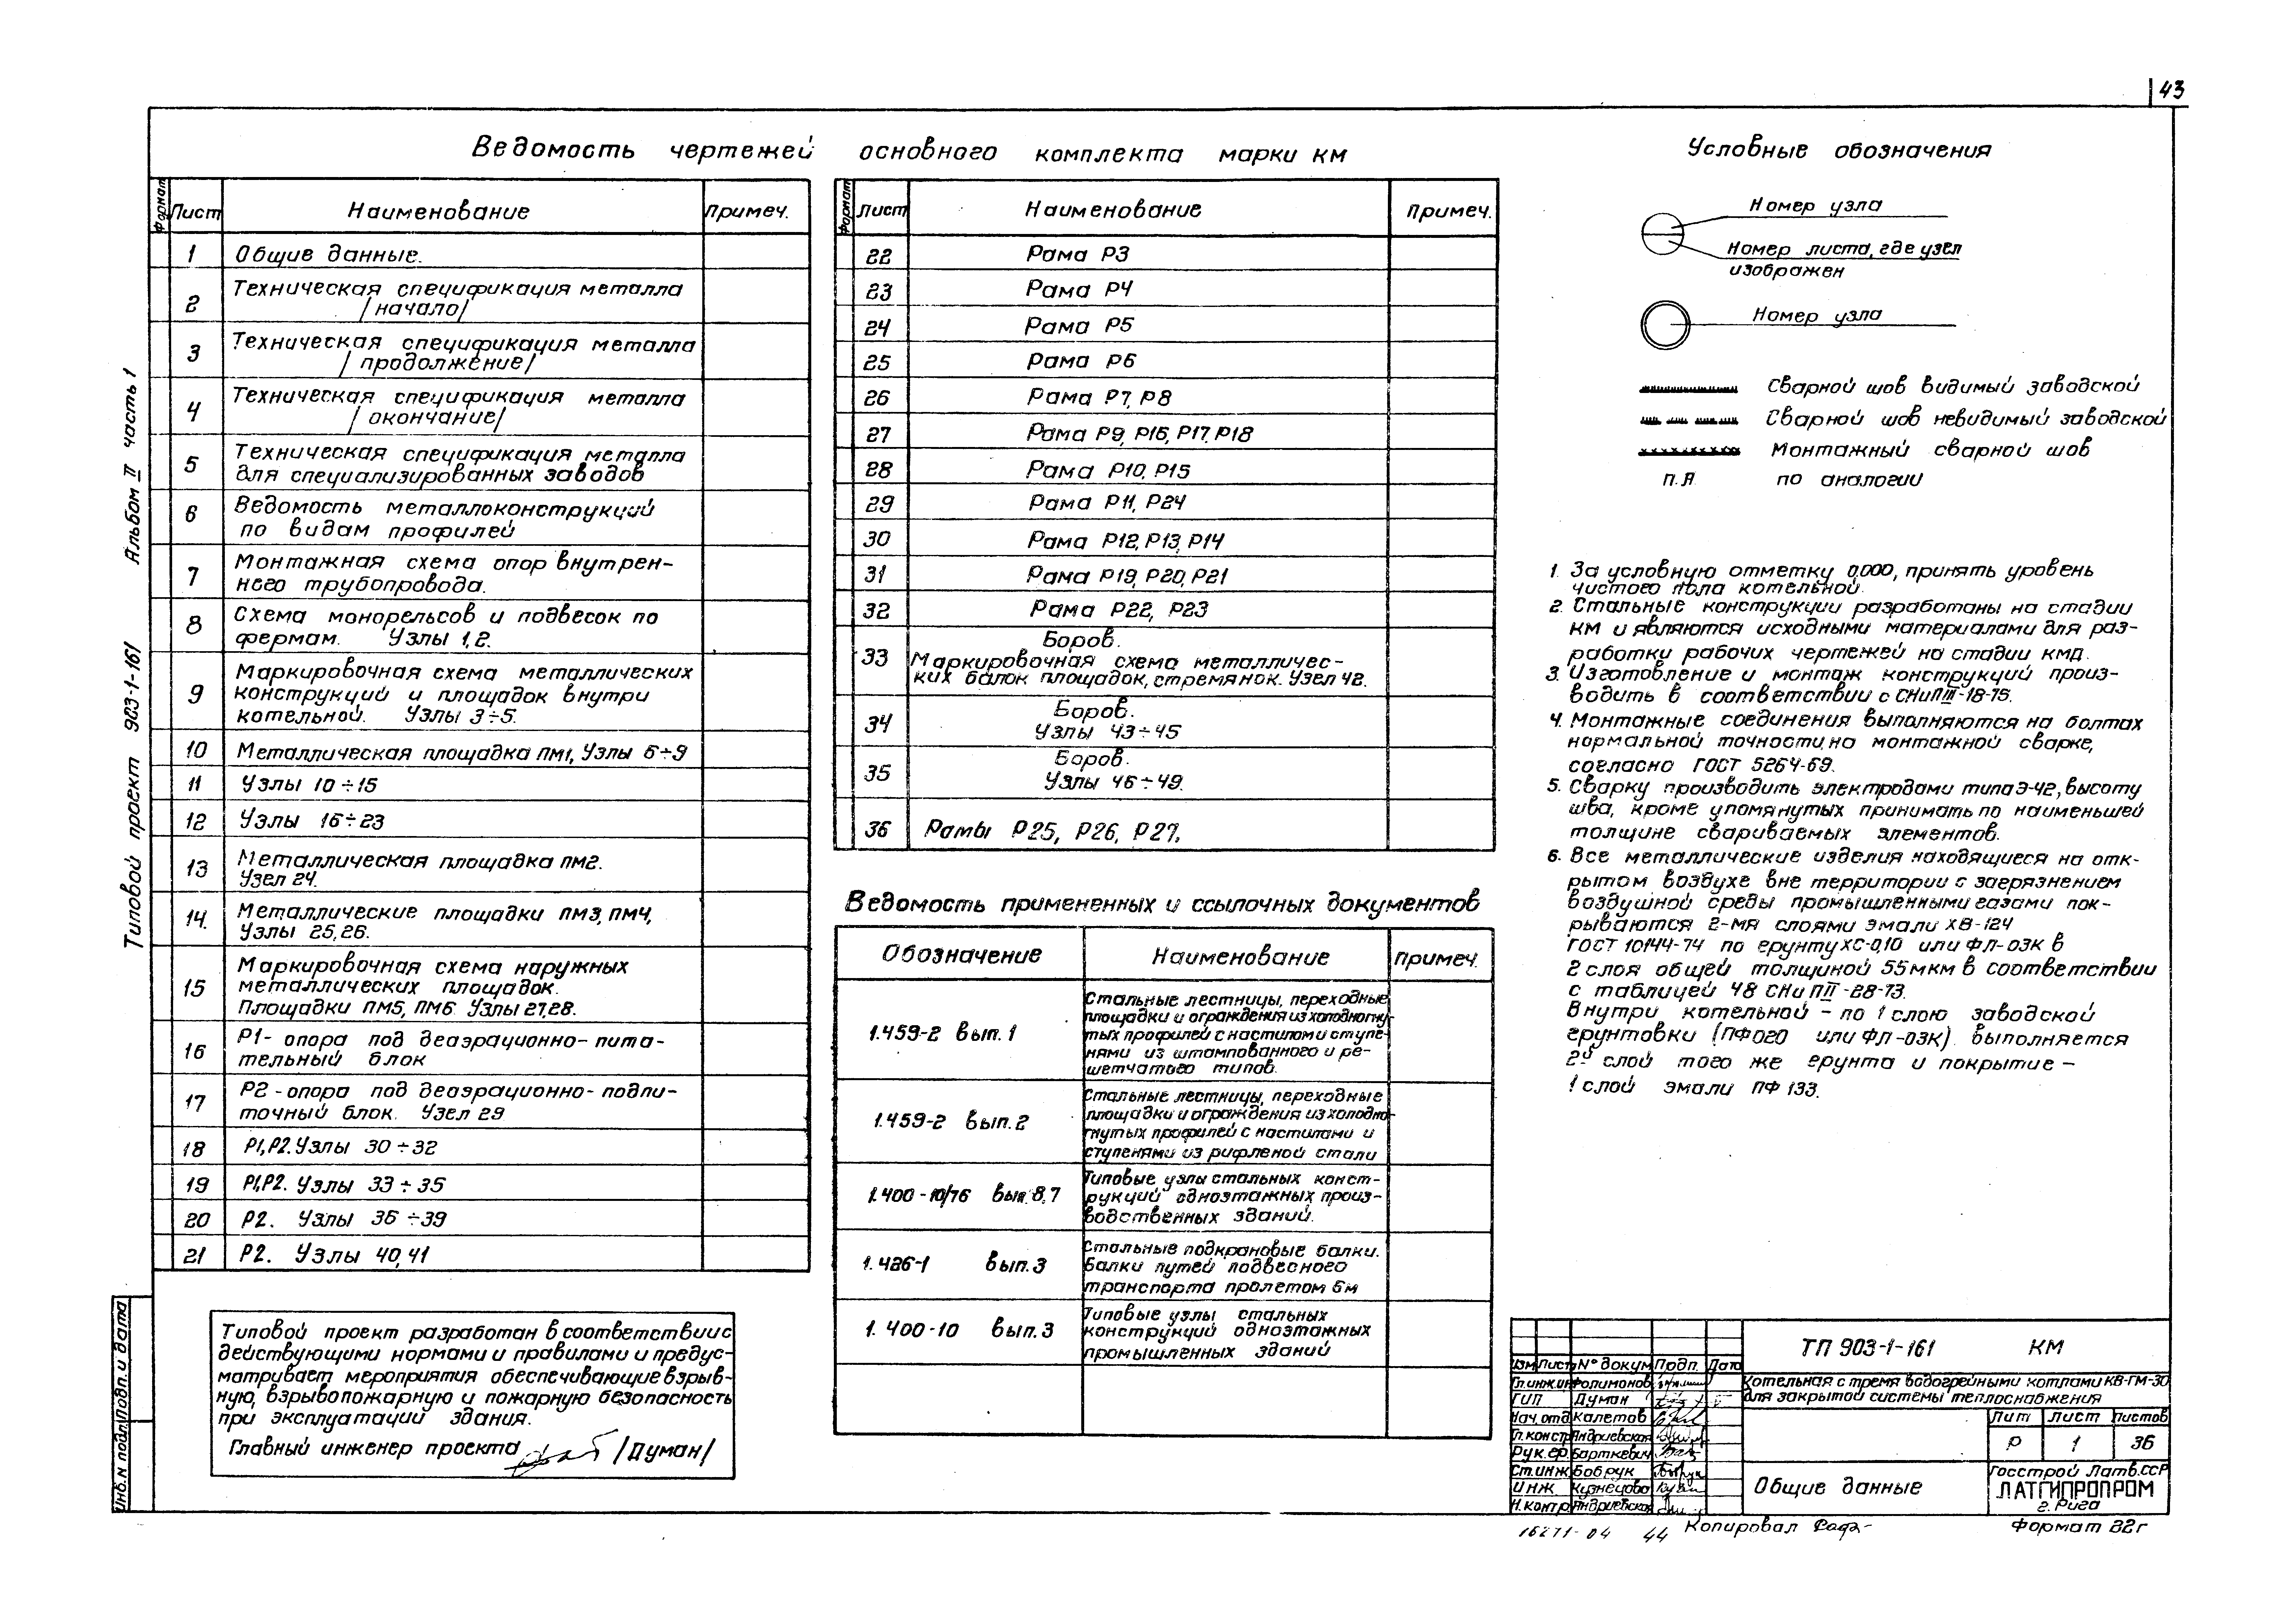 43
Ведомость чертежей основного комплекта марки КМ
Формат Лист Наименование Примеч.
1 Общие данные.
2 Техническая спецификация металла
/начало/
3 Техническая спецификация металла
/продолжение/
4 Техническая спецификация металла
/окончание/
5 Техническая спецификация металла
для специализированных заводов
6 Ведомость металлоконструкций
по видам профилей
7 Монтажная схема опор внутрен-
него трубопровода.
8 Схема монорельсов и подвесок по
фермам. Узлы 1,2.
9 Маркировочная схема металлических
конструкций и площадок внутри
котельной. Узлы 3÷5.
10 Металлическая площадка ПМ1, Узлы 6÷9
11 Узлы 10÷15
12 Узлы 16÷23
13 Металлическая площадка ПМ2.
Узел 24.
14. Металлические площадки ПМ3, ПМ4,
Узлы 25,26.
15 Маркировочная схема наружных
металлических площадок.
Площадки ПМ5, ПМ6 Узлы 27,28.
16 Р1- опора под деаэрационно-пита-
тельный блок
17 Р2-опора под деаэрационно-подпи-
точный блок. Узел 29
18 Р1,Р2. Узлы 30÷32
19 Р1,Р2. Узлы 33÷35
20 Р2. Узлы 36÷39
21 Р2. Узлы 40,41
Формат Лист Наименование Примеч.
22 Рама Р3
23 Рама Р4
24 Рама Р5
25 Рама Р6
26 Рама Р7, Р8
27 Рама Р9, Р16, Р17, Р18
28 Рама Р10, Р15
29 Рама Р11, Р24
30 Рама Р12, Р13, Р14
31 Рама Р19, Р20, Р21
32 Рама Р22, Р23
33 Боров.
Маркировочная схема металличес-
ких балок площадок, стремянок. Узел 42.
34 Боров.
Узлы 43÷45
35 Боров.
Узлы 46÷49.
36 Рамы Р25, Р26, Р27.
Ведомость примененных и ссылочных документов
Обозначение Наименование Примеч.
1.459-2 вып.1 Стальные лестницы, переходные
площадки и ограждения из холодногну-
тых профилей с настилами и ступе-
нями из штампованного и ре-
шетчатого типов.
1.459-2 вып.2 Стальные лестницы, переходные
площадки и ограждения из холодно-
гнутых профилей с настилами и
ступенями из рифленой стали
1.400-10/76 вып.8,7 Типовые узлы стальных конст-
рукций одноэтажных произ-
водственных зданий.
1.426-1 вып.3 Стальные подкрановые балки.
Балки путей подвесного
транспорта пролетом 6м
1.400-10 вып.3 Типовые узлы стальных
конструкций одноэтажных
промышленных зданий
Условные обозначения
Номер узла
Номер листа, где узел
изображен
Номер узла
Сварной шов видимый заводской
Сварной шов невидимый заводской
Монтажный сварной шов
П.А. по аналогии
1. За условную отметку 0,000, принять уровень
чистого пола котельной.
2. Стальные конструкции разработаны на стадии
КМ и являются исходными материалами для раз-
работки рабочих чертежей на стадии КМД.
3. Изготовление и монтаж конструкций произ-
водить в соответствии с СНиП III-18-75.
4. Монтажные соединения выполняются на болтах
нормальной точности, на монтажной сварке,
согласно ГОСТ 5264-69.
5. Сварку производить электродами типа Э-42, высоту
шва, кроме упомянутых принимать по наименьшей
толщине свариваемых элементов.
6. Все металлические изделия находящиеся на отк-
рытом воздухе вне территории с загрязнением
воздушной среды промышленными газами пок-
рываются 2-мя слоями эмали ХВ-124
ГОСТ 10144-74 по грунту ХС-0,10 или ФЛ-03К в
2 слоя общей толщиной 55мкм в соответствии
с таблицей 48 СНиП II-28-73.
Внутри котельной – по 1 слою заводской
грунтовки (ПФ 020 или ФЛ-03К). выполняется
2й слой того же грунта и покрытие –
1 слой эмали ПФ 133.
Типовой проект разработан в соответствии с
действующими нормами и правилами и предус-
матривает мероприятия обеспечивающие взрыв-
ную, взрывопожарную и пожарную безопасность
при эксплуатации здания.
Главный инженер проекта /Думан/
Типовой проект 903-1-161 Альбом II часть 1
Инв.N подл. Подп. и дата
Изм Лист N° докум Подп. Дата
Гл.инж.ин Фолимонов
ГИП Думан
Нач.отд Калетов
Гл.конст Андриевская
Рук.гр. Барткевич
Ст.инж Бобрук
Инж Кузнецова
Н.контр Андриевская
ТП 903-1-161 КМ
Котельная с тремя водогрейными котлами КВ-ГМ-30
для закрытой системы теплоснабжения
Лит Лист Листов
Р 1 36
Общие данные
Госстрой Латв.ССР
ЛАТГИПРОПРОМ
г. Рига
16271-04 44 Копировал Формат 22г